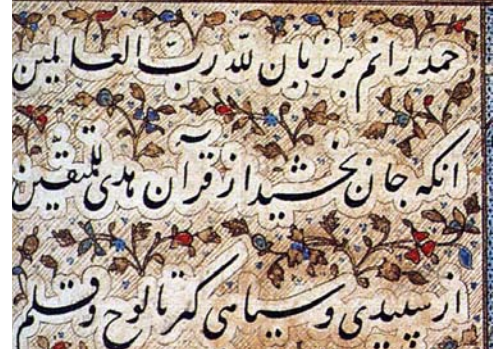 حمد رانم بر زبان للّه ربّ العالمین
انکه جان بخشید از قرآن هدی للمتقین
از سپیدی و سیاهی کرتا لوح و قلم